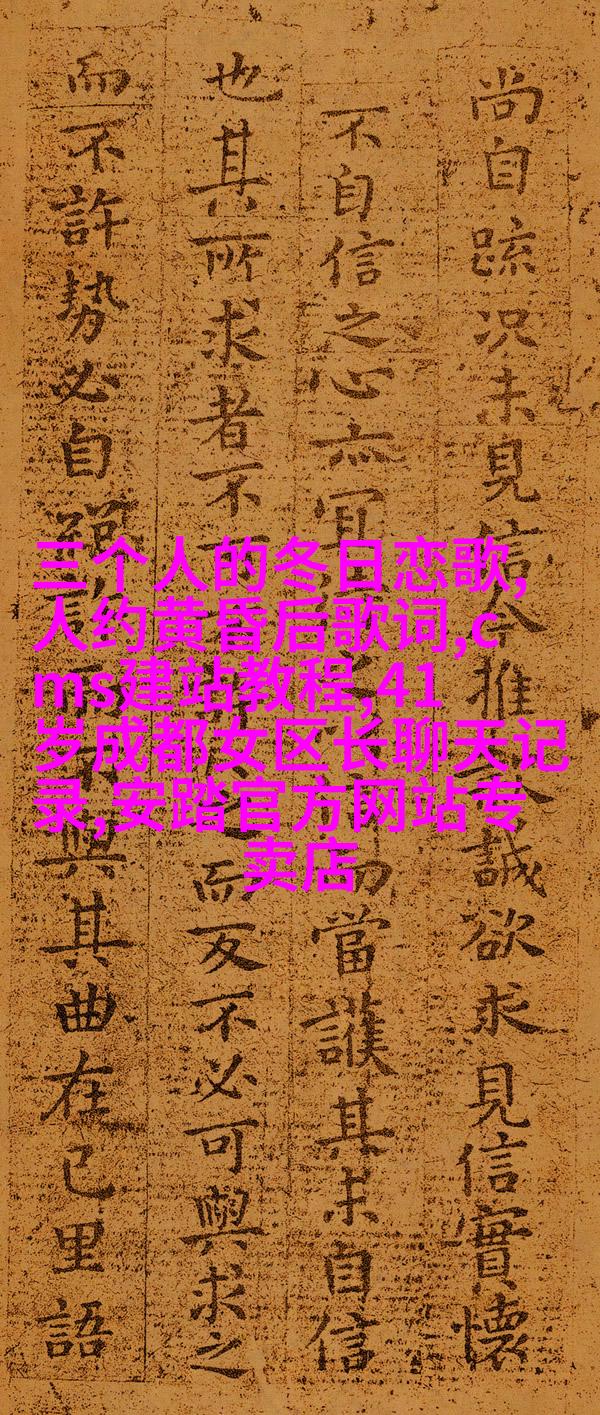 尚自踈况未見信今推誠欲求見信實懷
不自信之心亦當護其未自信
也其所求者不而反不必可與求之
而不許勢必自與其曲在已里語
三个人的冬日恋歌,
人约黄昏后歌词,c
ms建站教程,41
岁成都女区长聊天记
录,安踏官方网站专
卖店